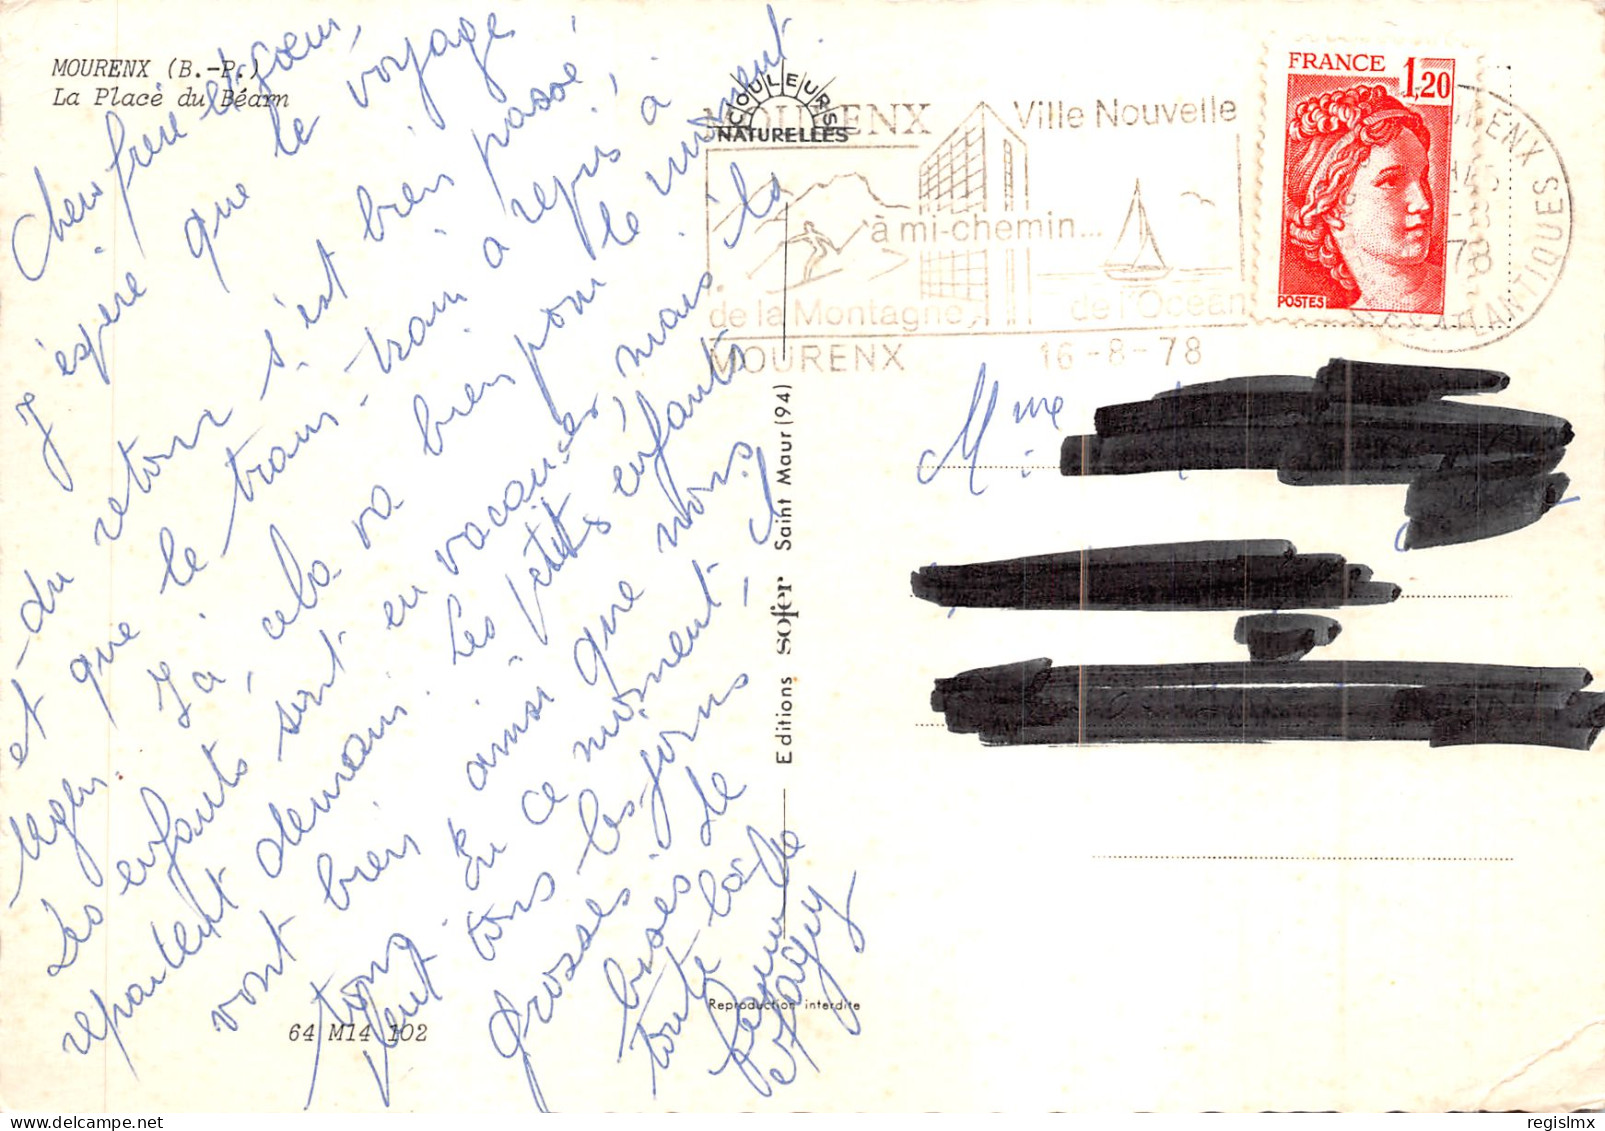 MOURENX (B.-P.)
La Place du Béarn
Chers frère et sœur,
J'espère que le voyage
du retour s'est bien passé
et que le train-train a repris à
Ici, cela va bien pour le moment.
Les enfants sont en vacances, mais ils
repartent demain. Les petits enfants
vont bien ainsi que nous
tous. En ce moment, il
pleut tous les jours.
Grosses
bises de
toute la
famille
64 M14 102
COULEURS
NATURELLES
Editions sofer Saint Maur (94)
Reproduction interdite
MOURENX Ville Nouvelle
à mi-chemin...
de la Montagne, de l'Océan
MOURENX 16-8-78
FRANCE 1,20
POSTES
MOURENX
78
ATLANTIQUES
Mme
regislmx